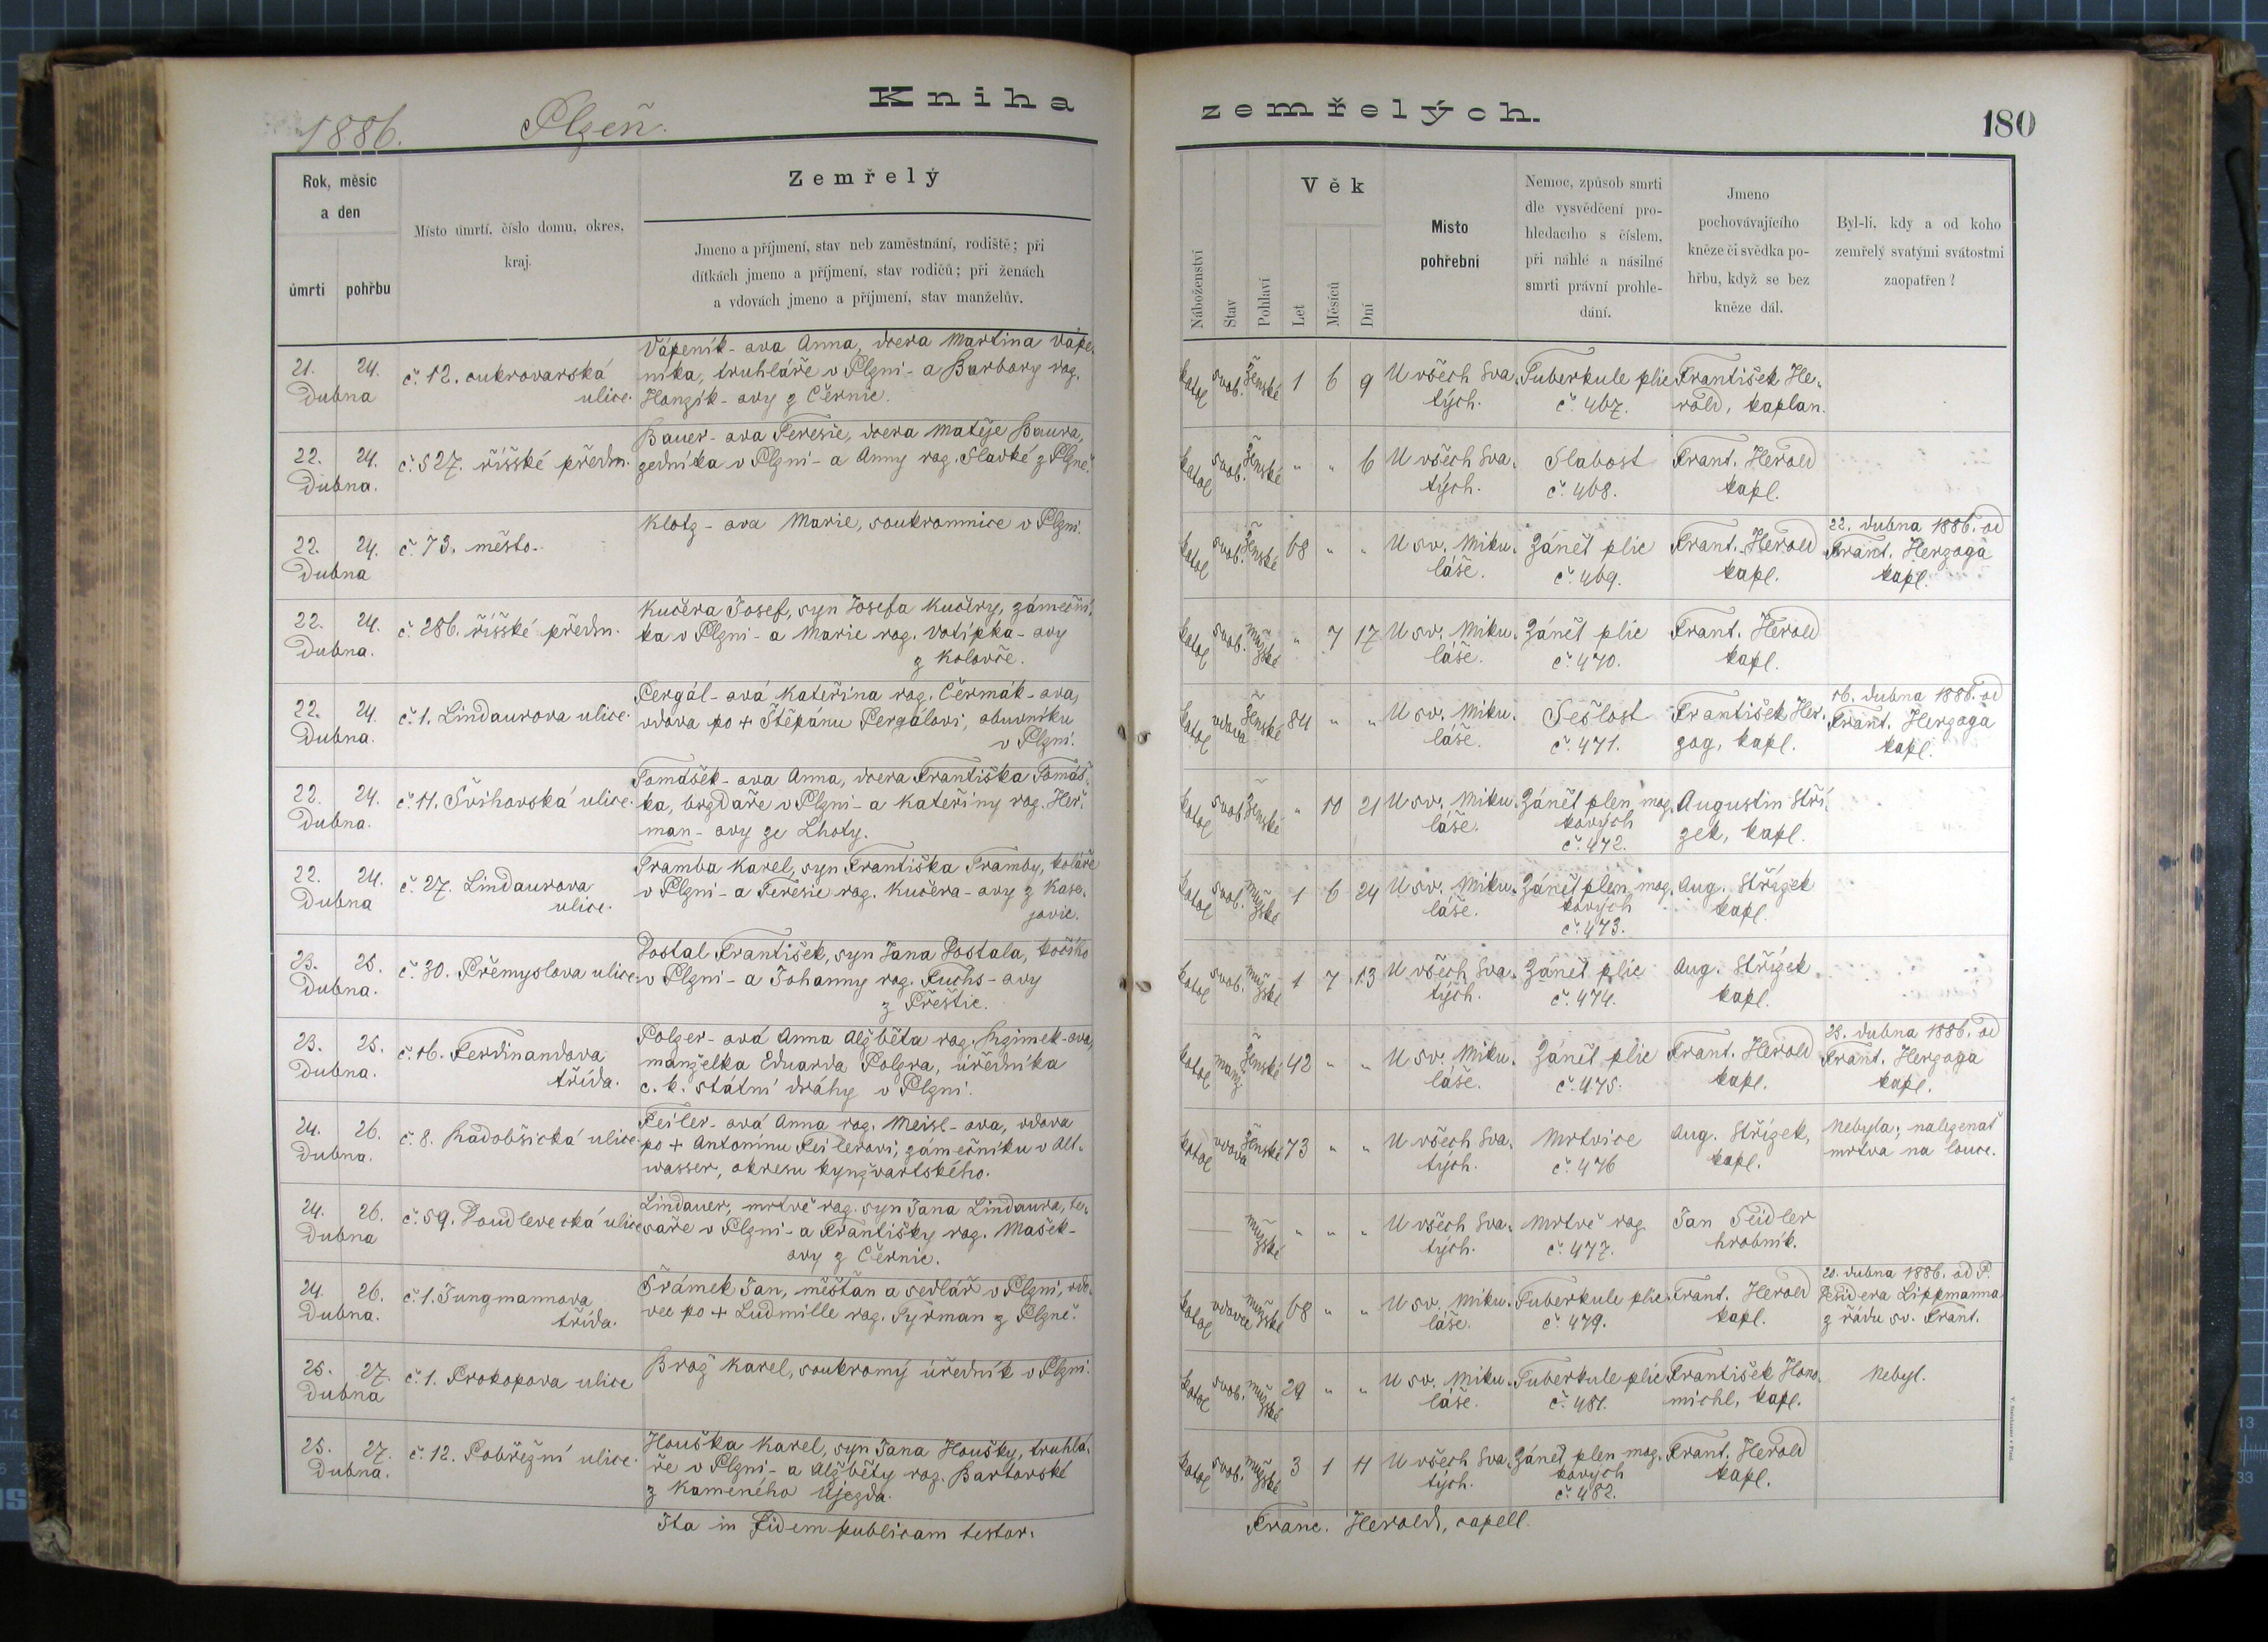 Kniha
zemřelých.
180
1886.
Plzeň.
Rok, měsíc
a den
úmrtí
pohřbu
Místo úmrtí, číslo domu, okres,
kraj.
Zemřelý
Jmeno a příjmení, stav neb zaměstnání, rodiště; při
dítkách jmeno a příjmení, stav rodičů; při ženách
a vdovách jmeno a příjmení, stav manželův.
Náboženství
Stav
Pohlaví
Věk
Let
Měsíců
Dní
Místo
pohřební
Nemoc, způsob smrti
dle vysvědčení pro-
hledacího s číslem,
při náhlé a násilné
smrti právní prohle-
dání.
Jmeno
pochovávajícího
kněze či svědka po-
hřbu, když se bez
kněze dál.
Byl-li, kdy a od koho
zemřelý svatými svátostmi
zaopatřen?
21. 24.
Dubna
č. 12. cukrovarská
ulice.
Vápeník-ova Anna, dcera Martina Vápe-
níka, truhláře v Plzni - a Barbory roz.
Honzík-ovy z Černic.
katol svob. Ženské 1 6 9
U všech Sva-
tých.
Tuberkule plic
č. 467.
František He-
rold, kaplan.
22. 24.
Dubna.
č. 527. říšské předm.
Bauer-ova Teresie, dcera Matěje Baura,
zedníka v Plzni - a Anny roz. Sladké z Plzně.
katol svob. Ženské " " 6
U všech Sva-
tých.
Slabost
č. 468.
Frant. Herold
kapl.
22. 24.
Dubna
č. 73. město.
Klotz-ova Marie, soukromnice v Plzni.
katol svob. Ženské 68 " "
U sv. Miku-
láše.
Zánět plic
č. 469.
Frant. Herold
kapl.
22. dubna 1886. od
Frant. Herzoga
kapl.
22. 24.
Dubna.
č. 286. říšské předm.
Kučera Josef, syn Josefa Kučery, zámeční-
ka v Plzni - a Marie roz. Votípka-ovy
z Koloveče.
katol svob. mužské " 7 17
U sv. Miku-
láše.
Zánět plic
č. 470.
Frant. Herold
kapl.
22. 24.
Dubna.
č. 1. Lindaurova ulice.
Pergál-ová Kateřina roz. Čermák-ova,
vdova po + Štěpánu Pergálovi, obuvníku
v Plzni.
katol vdova Ženské 84 " "
U sv. Miku-
láše.
Sešlost
č. 471.
František Her-
zog, kapl.
16. dubna 1886. od
Frant. Herzoga
kapl.
22. 24.
Dubna.
č. 11. Švihovská ulice.
Tomášek-ova Anna, dcera Františka Tomáš-
ka, brzdaře v Plzni - a Kateřiny roz. Heř-
man-ovy ze Lhoty.
katol svob. Ženské " 10 21
U sv. Miku-
láše.
Zánět plen moz-
kových
č. 472.
Augustin Stří-
zek, kapl.
22. 24.
Dubna
č. 27. Lindaurova
ulice.
Tramba Karel, syn Františka Tramby, koláře
v Plzni - a Teresie roz. Kučera-ovy z Kase-
jovic.
katol svob. mužské 1 6 24
U sv. Miku-
láše.
Zánět plen moz-
kových
č. 473.
Aug. Střízek
kapl.
23. 25.
Dubna.
č. 30. Přemyslova ulice
Dostal František, syn Jana Dostala, kočího
v Plzni - a Johanny roz. Fuchs-ovy
z Přeštic.
katol svob. mužské 1 7 13
U všech Sva-
tých.
Zánět plic
č. 474.
Aug. Střízek
kapl.
23. 25.
Dubna.
č. 16. Ferdinandova
třída.
Polzer-ová Anna Alžběta roz. -ova,
manželka Eduarda Polzra, úředníka
c. k. státní dráhy v Plzni.
katol manž. Ženské 42 " "
U sv. Miku-
láše.
Zánět plic
č. 475.
Frant. Herold
kapl.
23. dubna 1886. od
Frant. Herzoga
kapl.
24. 26.
Dubna.
č. 8. Radobšická ulice.
Feiler-ová Anna roz. Meisl-ova, vdova
po + Antonínu Feilerovi, zámečníku v Alt-
wasser, okresu kynžvartského.
katol vdova Ženské 73 " "
U všech Sva-
tých.
Mrtvice
č. 476
Aug. Střízek,
kapl.
Nebyla; nalezenať
mrtva na louce.
24. 26.
Dubna
č. 59. Doudlevecká ulice
Lindauer, mrtvě roz. syn Jana Lindaura, te-
saře v Plzni - a Františky roz. Mašek-
ovy z Černic.
mužské " " "
U všech Sva-
tých.
Mrtvě roz
č. 477.
Jan Seidler
hrobník.
24. 26.
Dubna.
č. 1. Jungmannova
třída.
Šrámek Jan, měšťan a sedlář v Plzni, vdo-
vec po + Ludmille roz. Syřman z Plzně.
katol vdovec mužské 68 " "
U sv. Miku-
láše.
Tuberkule plic.
č. 479.
Frant. Herold
kapl.
20. dubna 1886. od P.
Lippmanna
z řádu sv. Frant.
25. 27.
Dubna
č. 1. Prokopova ulice
Brož Karel, soukromý úředník v Plzni.
katol svob. mužské 29 " "
U sv. Miku-
láše.
Tuberkule plic
č. 481.
František Hons-
michl, kapl.
Nebyl.
25. 27.
Dubna.
č. 12. Pobřežní ulice.
Houška Karel, syn Jana Houšky, truhlá-
ře v Plzni - a Alžběty roz. Bartovské
z Kameného Újezda.
katol svob. mužské 3 1 11
U všech Sva-
tých.
Zánět plen moz-
kových
č. 482.
Frant. Herold
kapl.
Ita in Fidem publicam testor.
Franc. Herold, capell.